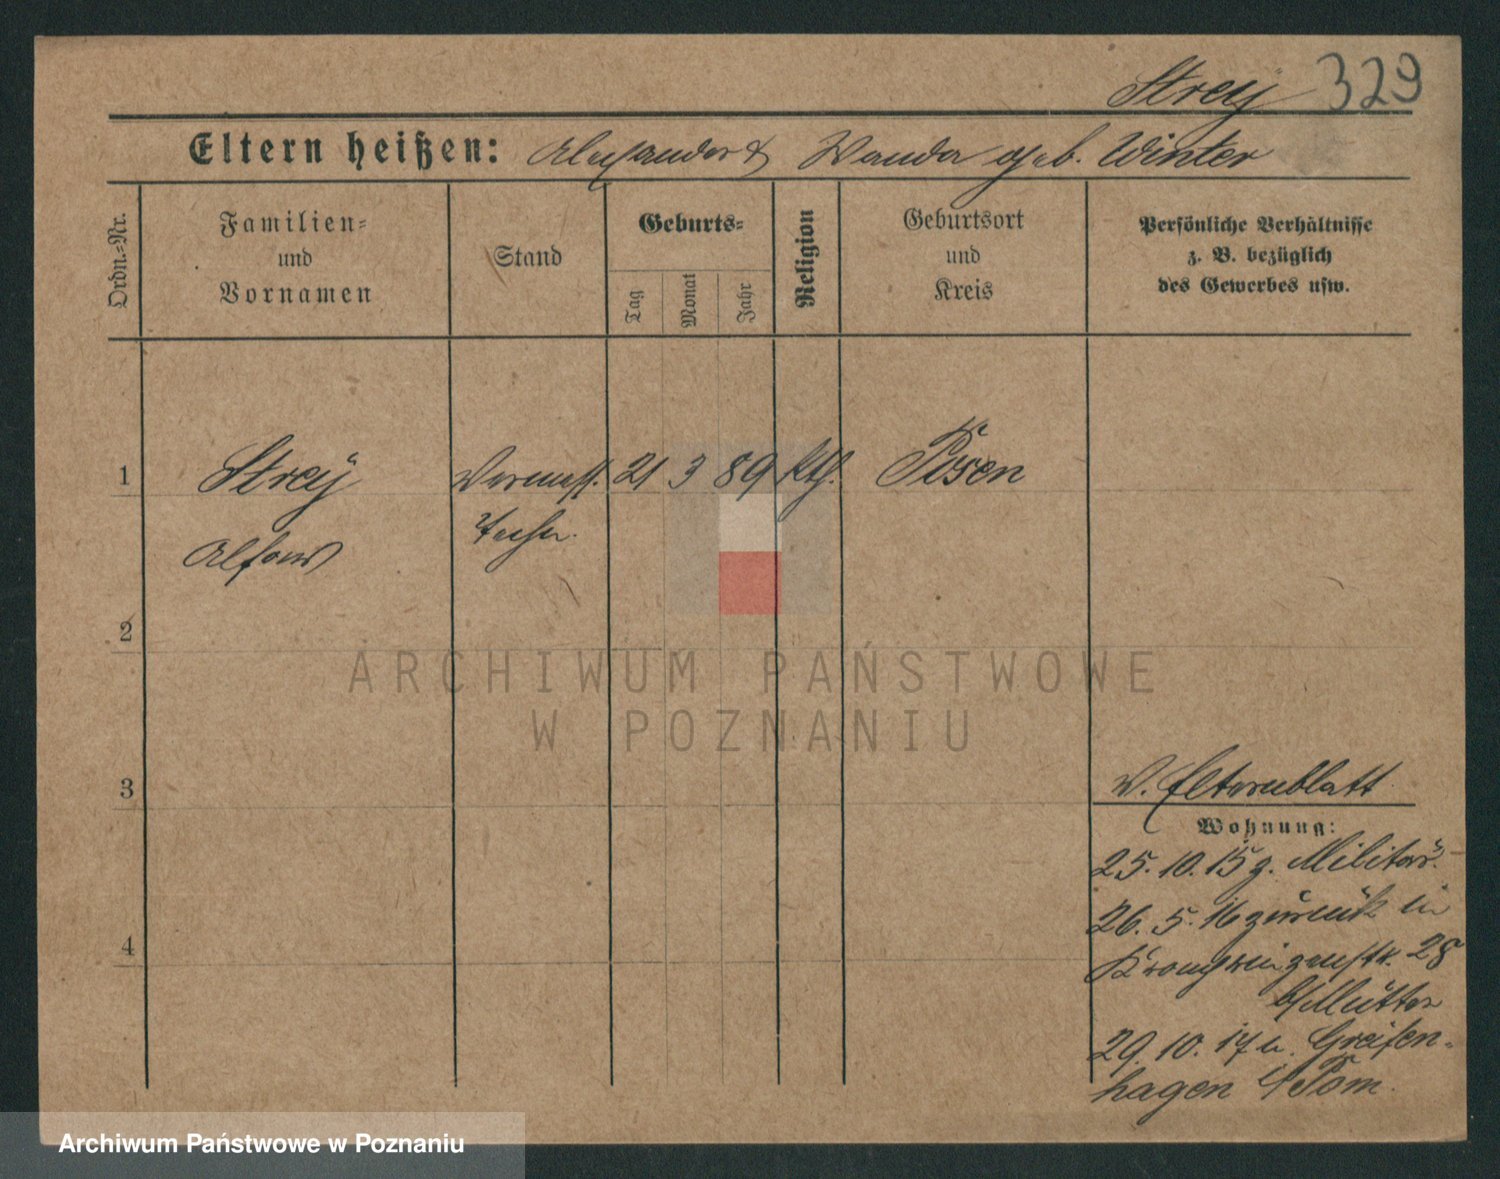 Strey 329
Eltern heißen: Alexander & Wanda geb. Winter
Ordn.-Nr.
Familien-
und
Vornamen
Stand
Geburts-
Tag
Monat
Jahr
Religion
Geburtsort
und
Kreis
Persönliche Verhältnisse
z. B. bezüglich
des Gewerbes usw.
1 Strey Vermess. 21 3 89 kth. Posen
Techn.
Alfons
2
3
4
V. Elternblatt
Wohnung:
25.10.15 z. Militär.
26.5.16 zurück in
Kronprinzenstr. 28
b/Mutter
29.10.17 n. Greifen-
hagen i/Pom.
ARCHIWUM PAŃSTWOWE
W POZNANIU
Archiwum Państwowe w Poznaniu